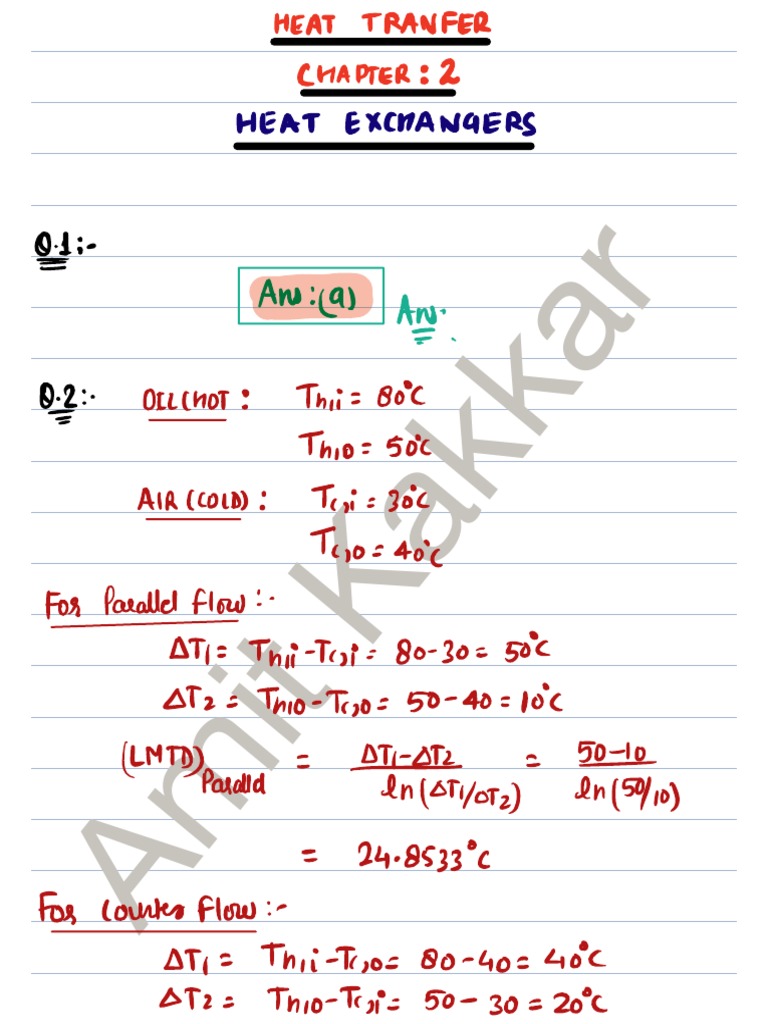 HEAT TRANFER
CHAPTER: 2
HEAT EXCHANGERS
Q.1:-
Ans:(a) Ans.
Q.2:- OIL(HOT: Th,i = 80°C
Th,o = 50°C
AIR(COLD): Tc,i = 30°C
Tc,o = 40°C
For Parallel flow:-
ΔT1 = Th,i - Tc,i = 80-30 = 50°C
ΔT2 = Th,o - Tc,o = 50-40 = 10°C
(LMTD)Parallel = ΔT1-ΔT2 / ln(ΔT1/ΔT2) = 50-10 / ln(50/10)
= 24.8533°C
For Counter Flow:-
ΔT1 = Th,i - Tc,o = 80-40 = 40°C
ΔT2 = Th,o - Tc,i = 50-30 = 20°C
Amit Kakkar